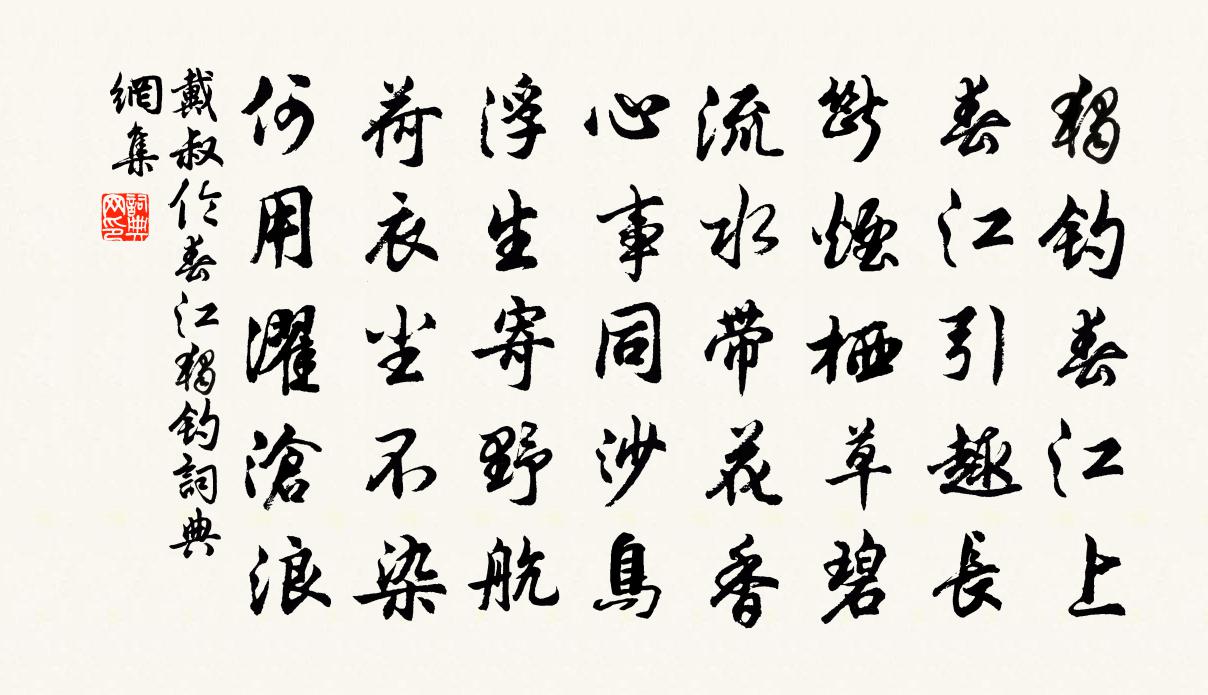 獨釣春江上
春江引趣長
斷煙栖草碧
流水帶花香
心事同沙鳥
浮生寄野航
荷衣尘不染
何用濯滄浪
戴叔伦春江獨釣詞典
網集
詞典
网印